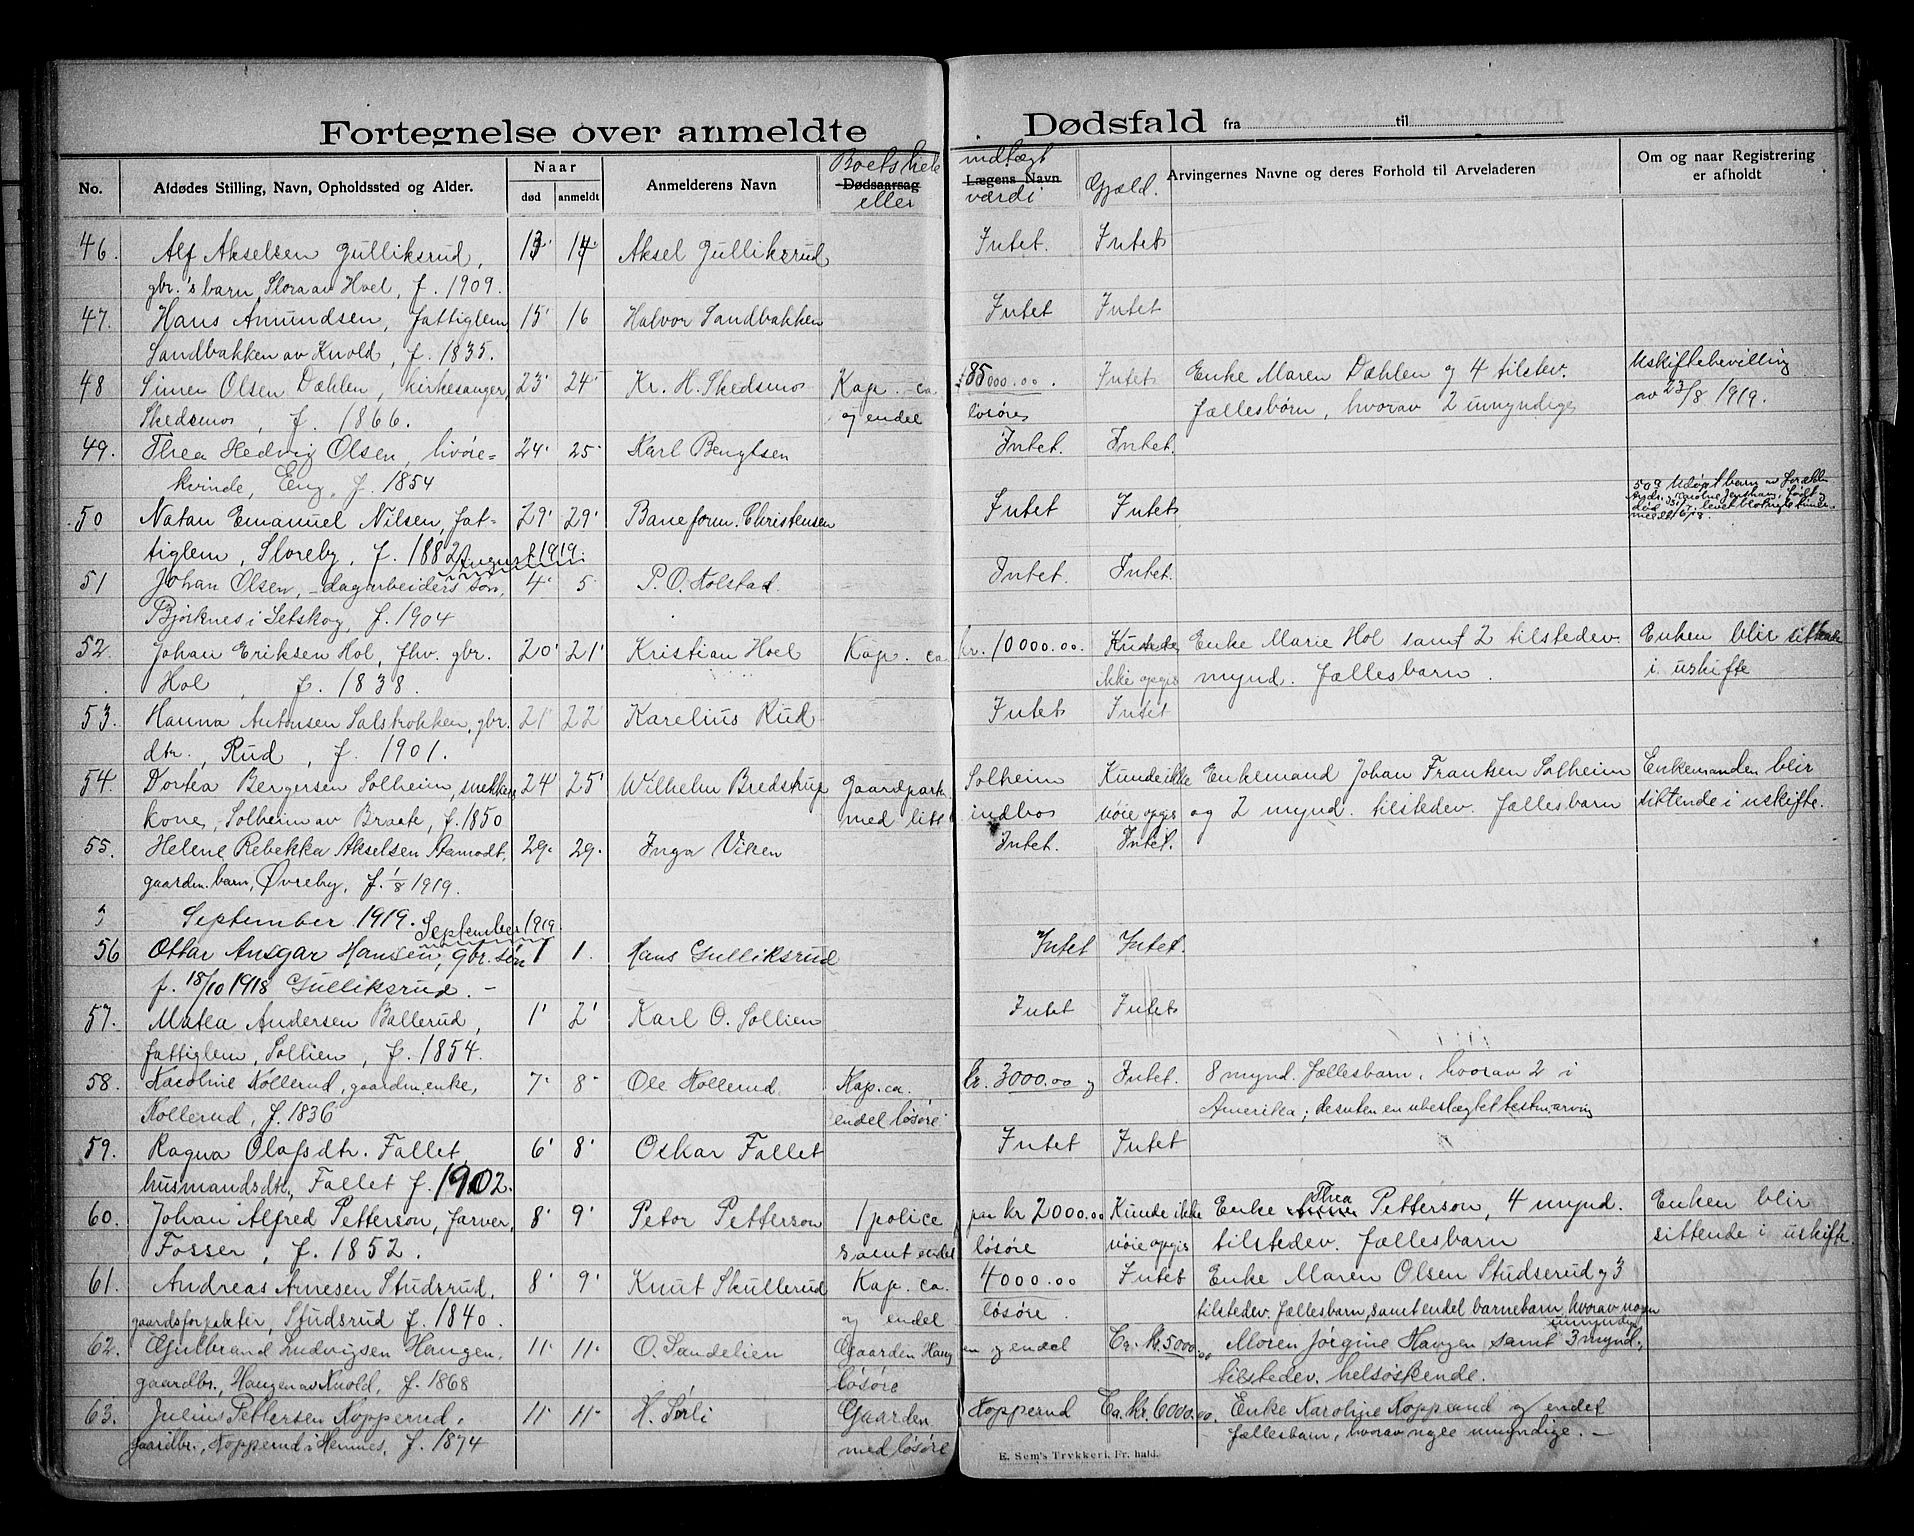 Fortegnelse over anmeldte Dødsfald fra til
No. Afdødes Stilling, Navn, Opholdssted og Alder. Naar død anmeldt Anmelderens Navn Boets hele Dødsaarsag eller indtægt Lægens Navn værdi Gjæld. Arvingernes Navne og deres Forhold til Arveladeren Om og naar Registrering er afholdt
46. Alf Akselsen Gulliksrud, 13' 14' Aksel Gulliksrud Intet. Intet
gbr.'s barn, Stora av Hvel, f. 1909.
47. Hans Amundsen, fattiglem, 15' 16 Halvor Sandbakken Intet Intet
Sandbakken av Knold, f. 1835.
48 Simen Olsen Dæhlen, kirkesanger, 23' 24' Kr. H. Skedsmo Kap. ca. 85000.00. Intet Enke Maren Dæhlen og 4 tilstev. Uskiftebevilling
Skedsmo, f. 1866. og endel løsøre fællesbørn, hvorav 2 umyndige av 23/8 1919.
49. Thea Hedvig Olsen, livøre- 24' 25' Karl Bengtsen Intet. Intet.
kvinde, Eng, f. 1854
50 Natan Emanuel Nilsen, fat- 29' 29' Baneform. Christensen Intet Intet
tiglem, Storeby, f. 1882
509 Udøpt barn av
August 1919.
51 Johan Olsen, dagarbeiders søn, 4' 5 P. O. Kolstad. Intet. Intet.
Bjørknes i Setskog, f. 1904
52 Johan Eriksen Hol, fhv. gbr. 20' 21' Kristian Hoel Kap. ca. kr. 10000.00. Kunde Enke Marie Hol samt 2 tilstedev. Enken blir sittende
Hol, f. 1838. ikke opgis mynd. fællesbarn. i uskifte
53. Hanna Antonsen Salstrokken, gbr. 21' 22' Karelius Rud Intet Intet
dtr., Rud, f. 1901.
54. Dortea Bergersen Solheim, snekkers 24' 25' Wilhelm Bredstrup Gaardpark Solheim Kunde ikke Enkemand Johan Frantsen Solheim Enkemanden blir
kone, Solheim av Braate, f. 1850 med litt indbo nøie opgis og 2 mynd. tilstedev. fællesbarn sittende i uskifte.
55. Helene Rebekka Akselsen Aamodt, 29. 29. Inga Viken Intet. Intet.
gaardm. barn, Øvreby, f. 1/8 1919.
September 1919. September 1919.
56 Ottar Ansgar Hansen, gbr. søn 1 1. Hans Gulliksrud Intet Intet.
f. 18/10 1918 Gulliksrud. –
57. Matea Andersen Ballerud, 1' 2' Karl O. Sollien Intet Intet
fattiglem, Sollien, f. 1854.
58. Karoline Kollerud, gaardm. enke, 7. 8. Ole Kollerud Kap. ca. kr. 3000.00 og Intet. 8 mynd. fællesbarn, hvorav 2 i
Kollerud, f. 1836 endel løsøre Amerika; desuten en ubeslægtet testm. arving
59. Ragna Olafsdtr. Fallet, 6' 8' Oskar Fallet Intet Intet
husmandsdtr., Fallet f. 1902.
60. Johan Alfred Petterson, farver, 8' 9' Petor Petterson 1 police paa kr 2000.00 Kunde ikke Enke Thea Petterson, 4 mynd. Enken blir
Fosser, f. 1852. samt endel løsøre nøie opgis tilstedev. fællesbarn sittende i uskifte.
61. Andreas Arnesen Studsrud, 8' 9' Knut Skullerud Kap. ca. 4000.00 Intet Enke Maren Olsen Studserud og 3
gaardsforpakter, Studsrud f. 1840. og endel løsøre. tilstedev. fællesbarn, samt endel barnebarn, hvorav nogen umyndige
62. Gulbrand Ludvigsen Haugen, 11. 11. O. Sandelien Gaarden Haugen og endel Ca. kr. 5000.00 Moren Jørgine Haugen samt 3 mynd.
gaardbr., Haugen av Knold, f. 1868 løsøre tilstedev. helsøskende.
63. Julius Pettersen Kopperud, 11. 11. H. Sørli Gaarden Kopperud Ca. kr. 6000.00. Enke Karoline Kopperud og endel
gaardbr., Kopperud i Hemnes, f. 1874 med løsøre fællesbarn, hvorav nogle umyndige. –
E. Sem's Trykkeri, Fr. hald.